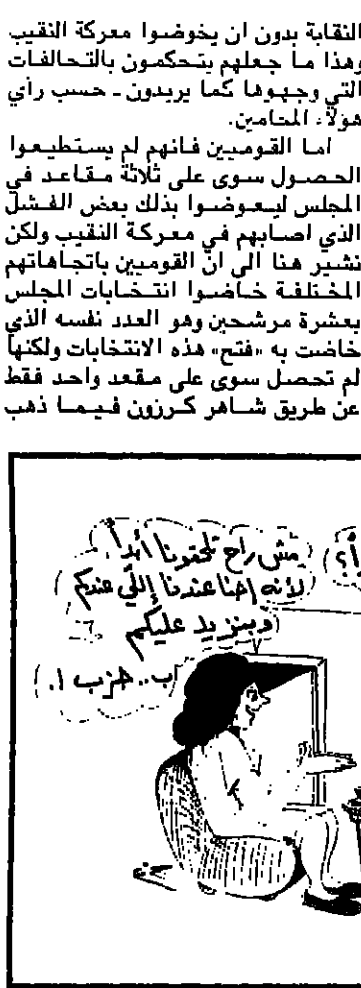 النقابة بدون ان يخوضوا معركة النقيب
وهذا ما جعلهم يتحكمون بالتحالفات
التي وجهوها كما يريدون ـ حسب رأي
هؤلاء المحامين.
اما القوميين فانهم لم يستطيعوا
الحصول سوى على ثلاثة مقاعد في
المجلس ليعوضوا بذلك بعض الفشل
الذي اصابهم في معركة النقيب ولكن
نشير هنا الى ان القوميين باتجاهاتهم
المختلفة خاضوا انتخابات المجلس
بعشرة مرشحين وهو العدد نفسه الذي
خاضت به «فتح» هذه الانتخابات ولكنها
لم تحصل سوى على مقعد واحد فقط
عن طريق شاهر كرزون فيما ذهب
مش راح تلحقونا أبداً
لأنه احنا عندنا إللّي عندكم
وبنزيد عليكم
ب.. حزب !.